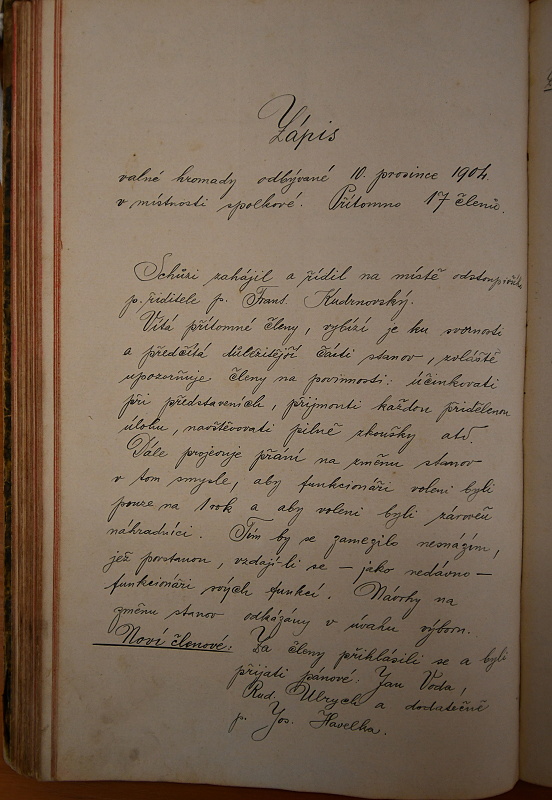 Zápis
valné hromady odbývané 10. prosince 1904
v místnosti spolkové. Přítomno 17 členů.
Schůzi zahájil a řídil na místě odstoupivšího
p. ředitele p. Frant. Kudrnovský.
Vítá přítomné členy, vybízí je ku svornosti
a předčítá důležitější části stanov, zvláště
upozorňuje členy na povinnosti: účinkovati
při představeních, přijmouti každou přidělenou
úlohu, navštěvovati pilně zkoušky atd.
Dále projevuje přání na změnu stanov
v tom smyslu, aby funkcionáři voleni byli
pouze na 1 rok a aby voleni byli zároveň
náhradníci. Tím by se zamezilo nesnázím,
jež povstanou, vzdají-li se – jako nedávno –
funkcionáři svých funkcí. Návrhy na
změnu stanov odkázány v úvahu výboru.
Noví členové: Za členy přihlásili se a byli
přijati pánové: Jan Voda,
Rud. Ulrych a dodatečně
p. Jos. Havelka.